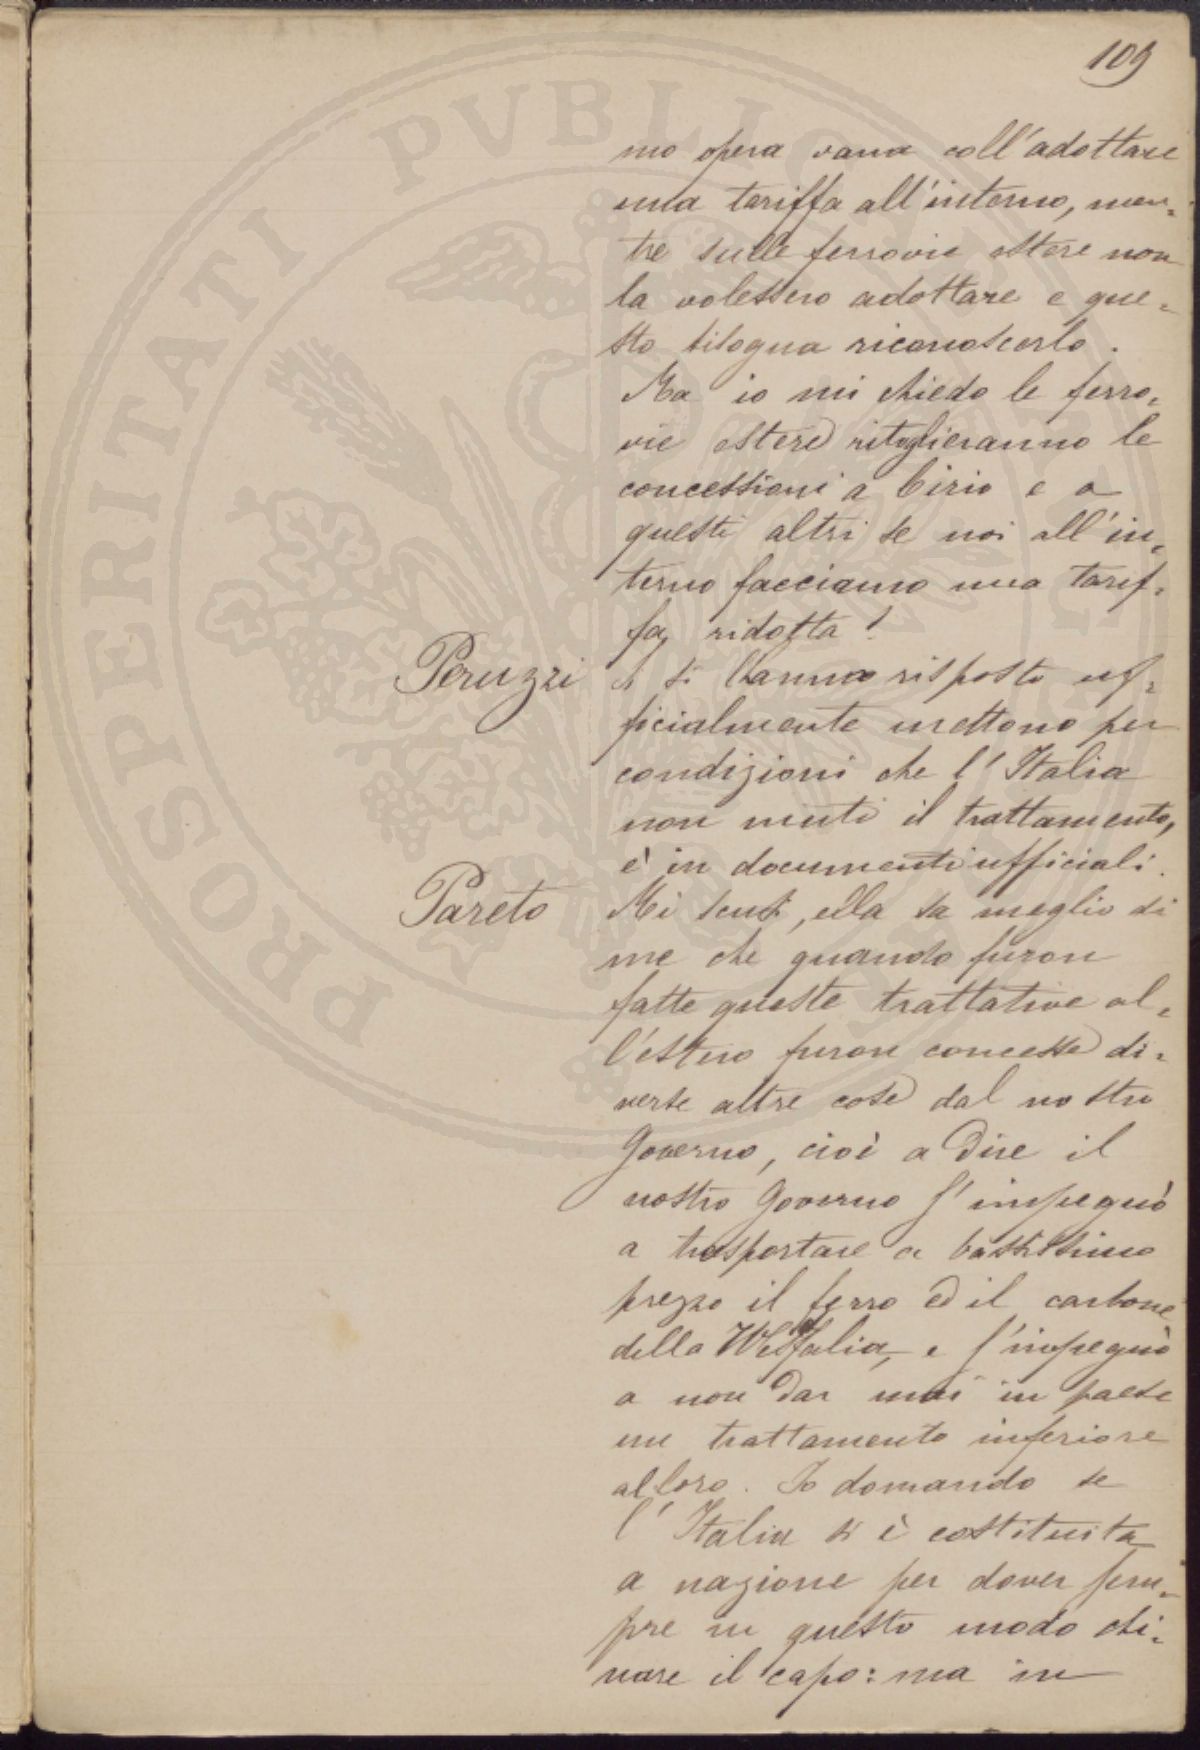 109
mo opera vana coll'adottare
una tariffa all'interno, men=
tre sulle ferrovie estere non
la volessero adottare e que=
sto bisogna riconoscerlo.
Ma io mi chiedo le ferro=
vie estere ritoglieranno le
concessioni a Cirio e a
questi altri se noi all'in=
terno facciamo una tarif=
fa ridotta?
Peruzzi
si hanno risposto uf=
ficialmente mettono per
condizioni che l'Italia
non muti il trattamento,
è in documenti ufficiali.
Pareto
Mi scusi, ella sa meglio di
me che quando furon
fatte queste trattative al=
l'estero furon concesse di=
verse altre cose dal nostro
Governo, cioè a dire il
nostro Governo s'impegnò
a trasportare a bassissimo
prezzo il ferro ed il carbone
della Westfalia, e s'impegnò
a non dar mai in paese
un trattamento inferiore
al loro. Io domando se
l'Italia si è costituita
a nazione per dover sem=
pre in questo modo chi=
nare il capo: ma in
PROSPERITATI PVBLICAE